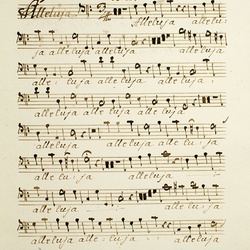 Alleluja Alleluja allelu-
ja alleluja alleluja
alleluja alleluja alle
alleluja alleluja
alleluja alleluja
alle lu: ja alleluja
alle luja alle lu: ja
alleluja alle: luja